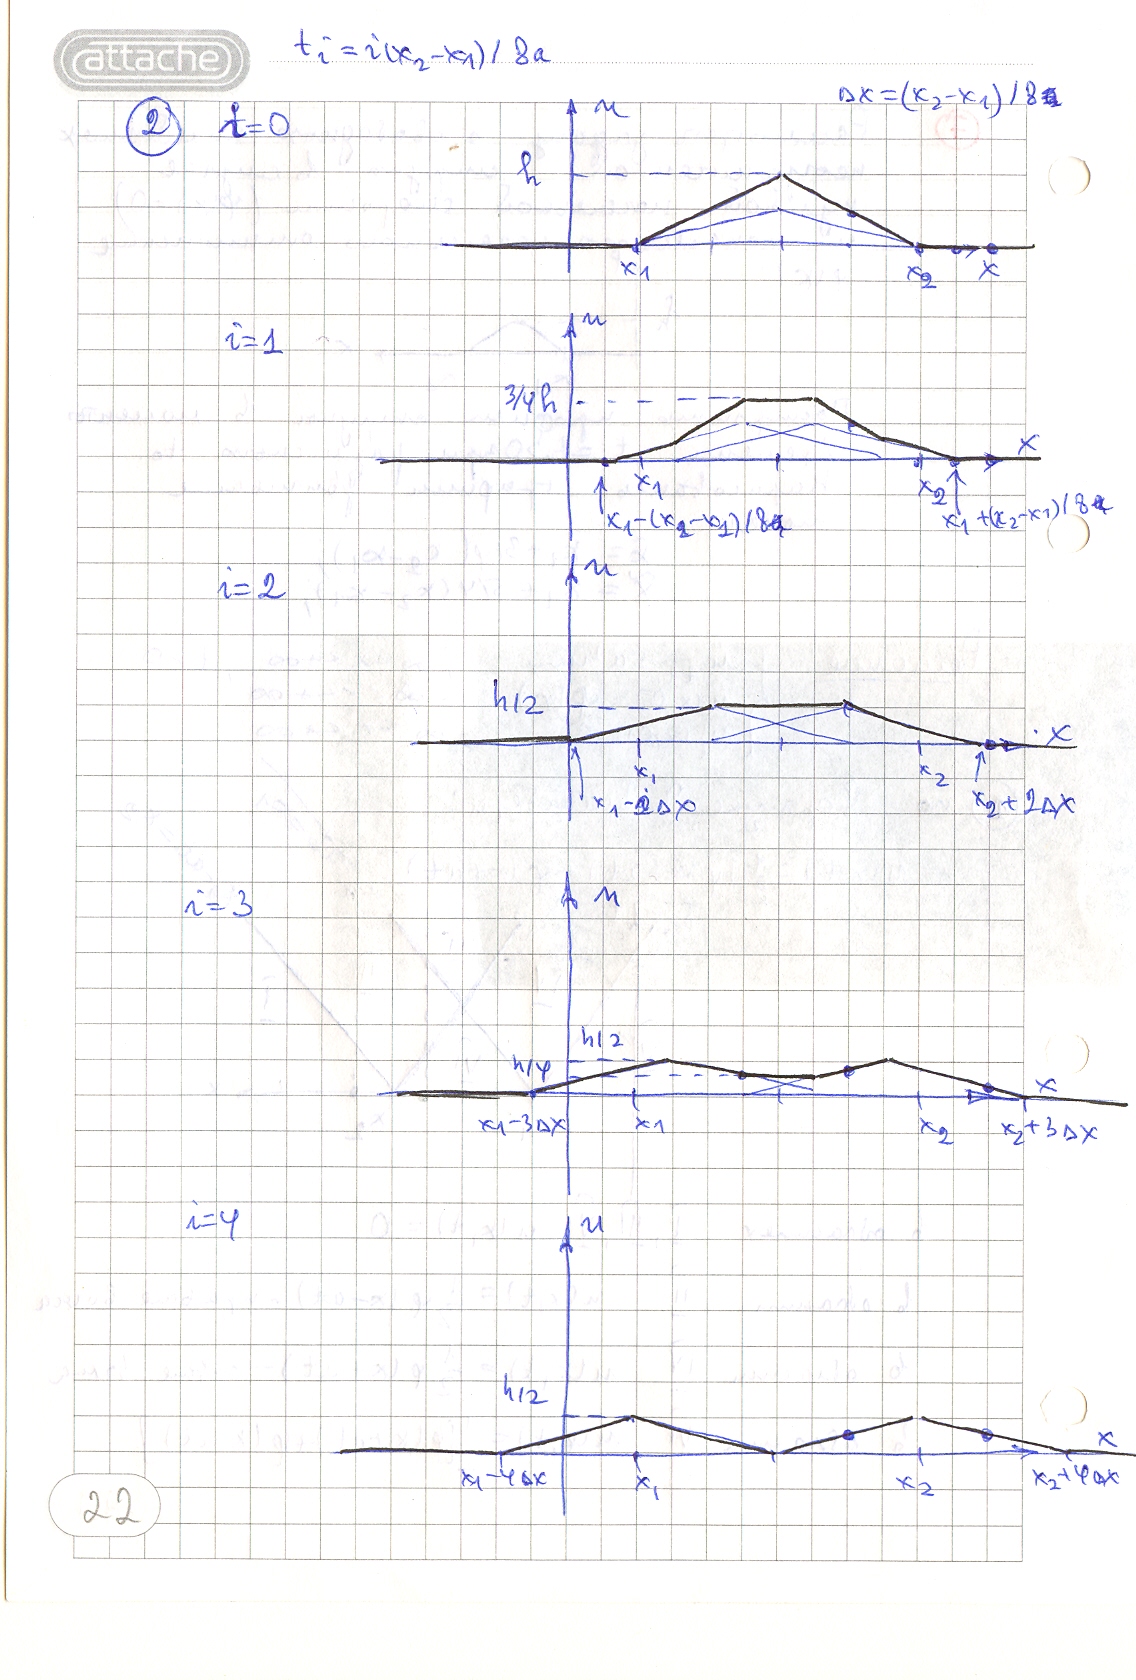 attache
tᵢ = i(x₂-x₁)/8a
Δx = (x₂-x₁)/8
② t=0
u
h
x₁
x₂
x
i=1
u
3/4h
x
x₁
x₂
x₁-(x₂-x₁)/8
x₁+(x₂-x₁)/8
i=2
u
h/2
x
x₁
x₂
x₁-2Δx
x₂+2Δx
i=3
u
h/2
h/4
x
x₁-3Δx
x₁
x₂
x₂+3Δx
i=4
u
h/2
x
x₁-4Δx
x₁
x₂
x₂+4Δx
22